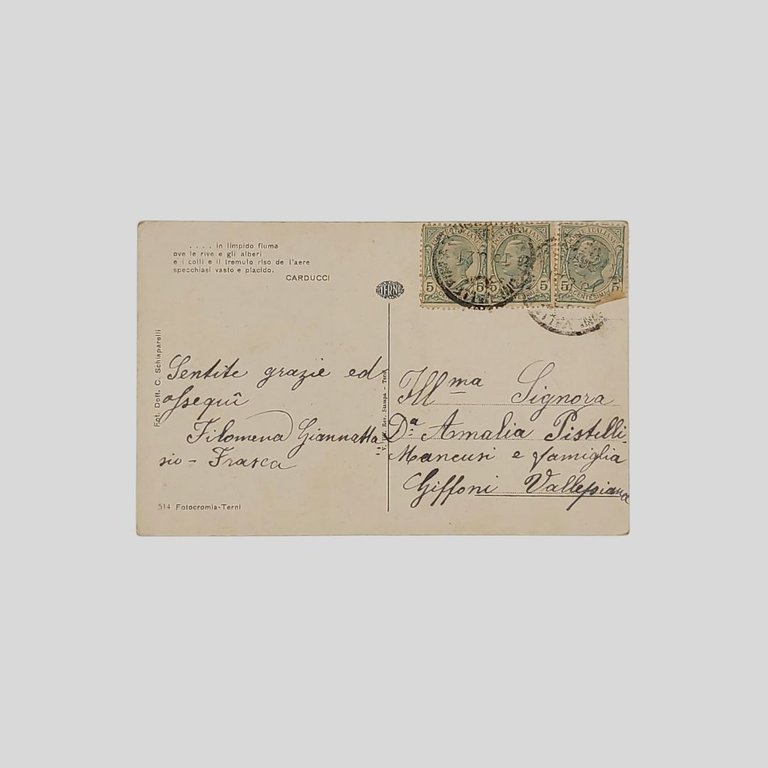 . . . . in limpido fiuma
ove le rive e gli alberi
e i colli e il tremulo riso de l'aere
specchiasi vasto e placido.
CARDUCCI
TERNI
Fot. Dott. C. Schiaparelli
Sentite grazie ed
ossequî
Filomena Giannatta
sio - Frasca
514 Fotocromia-Terni
Rev. Stampa. - Terni
Ill.ma Signora
D.a Amalia Pistelli
Mancusi e famiglia
Giffoni Vallepiana
5 5 5 5 5 5